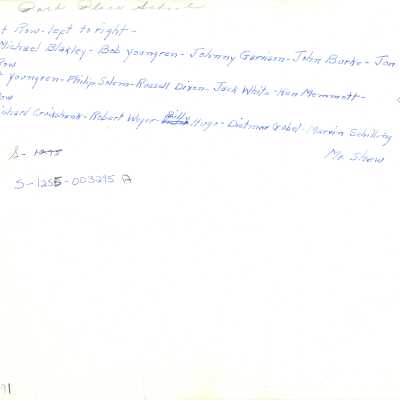 Park Place School
t Row - left to right -
Michael Blakley - Bob Youngren - Johnny Garrison - John Burke - Jon
Row
Youngren - Philip Solem - Russell Dixon - Jack White - Ken Mommott -
ow
ichard Crookshank - Robert Weyer - Billy Hugo - Dietmar Grabel - Marvin Schilling
S-1295
Mr. Shaw
S-1255-003295 A
91